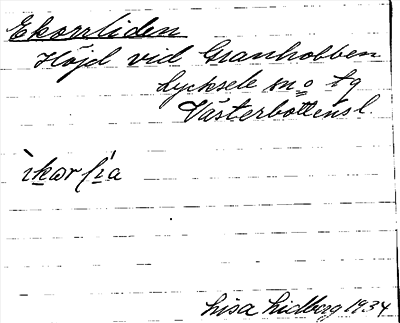 Ekorrliden
Höjd vid Grankobben
Lycksele sn o tg
Västerbottens l.
ìkorlía
Lisa Lidberg 1934